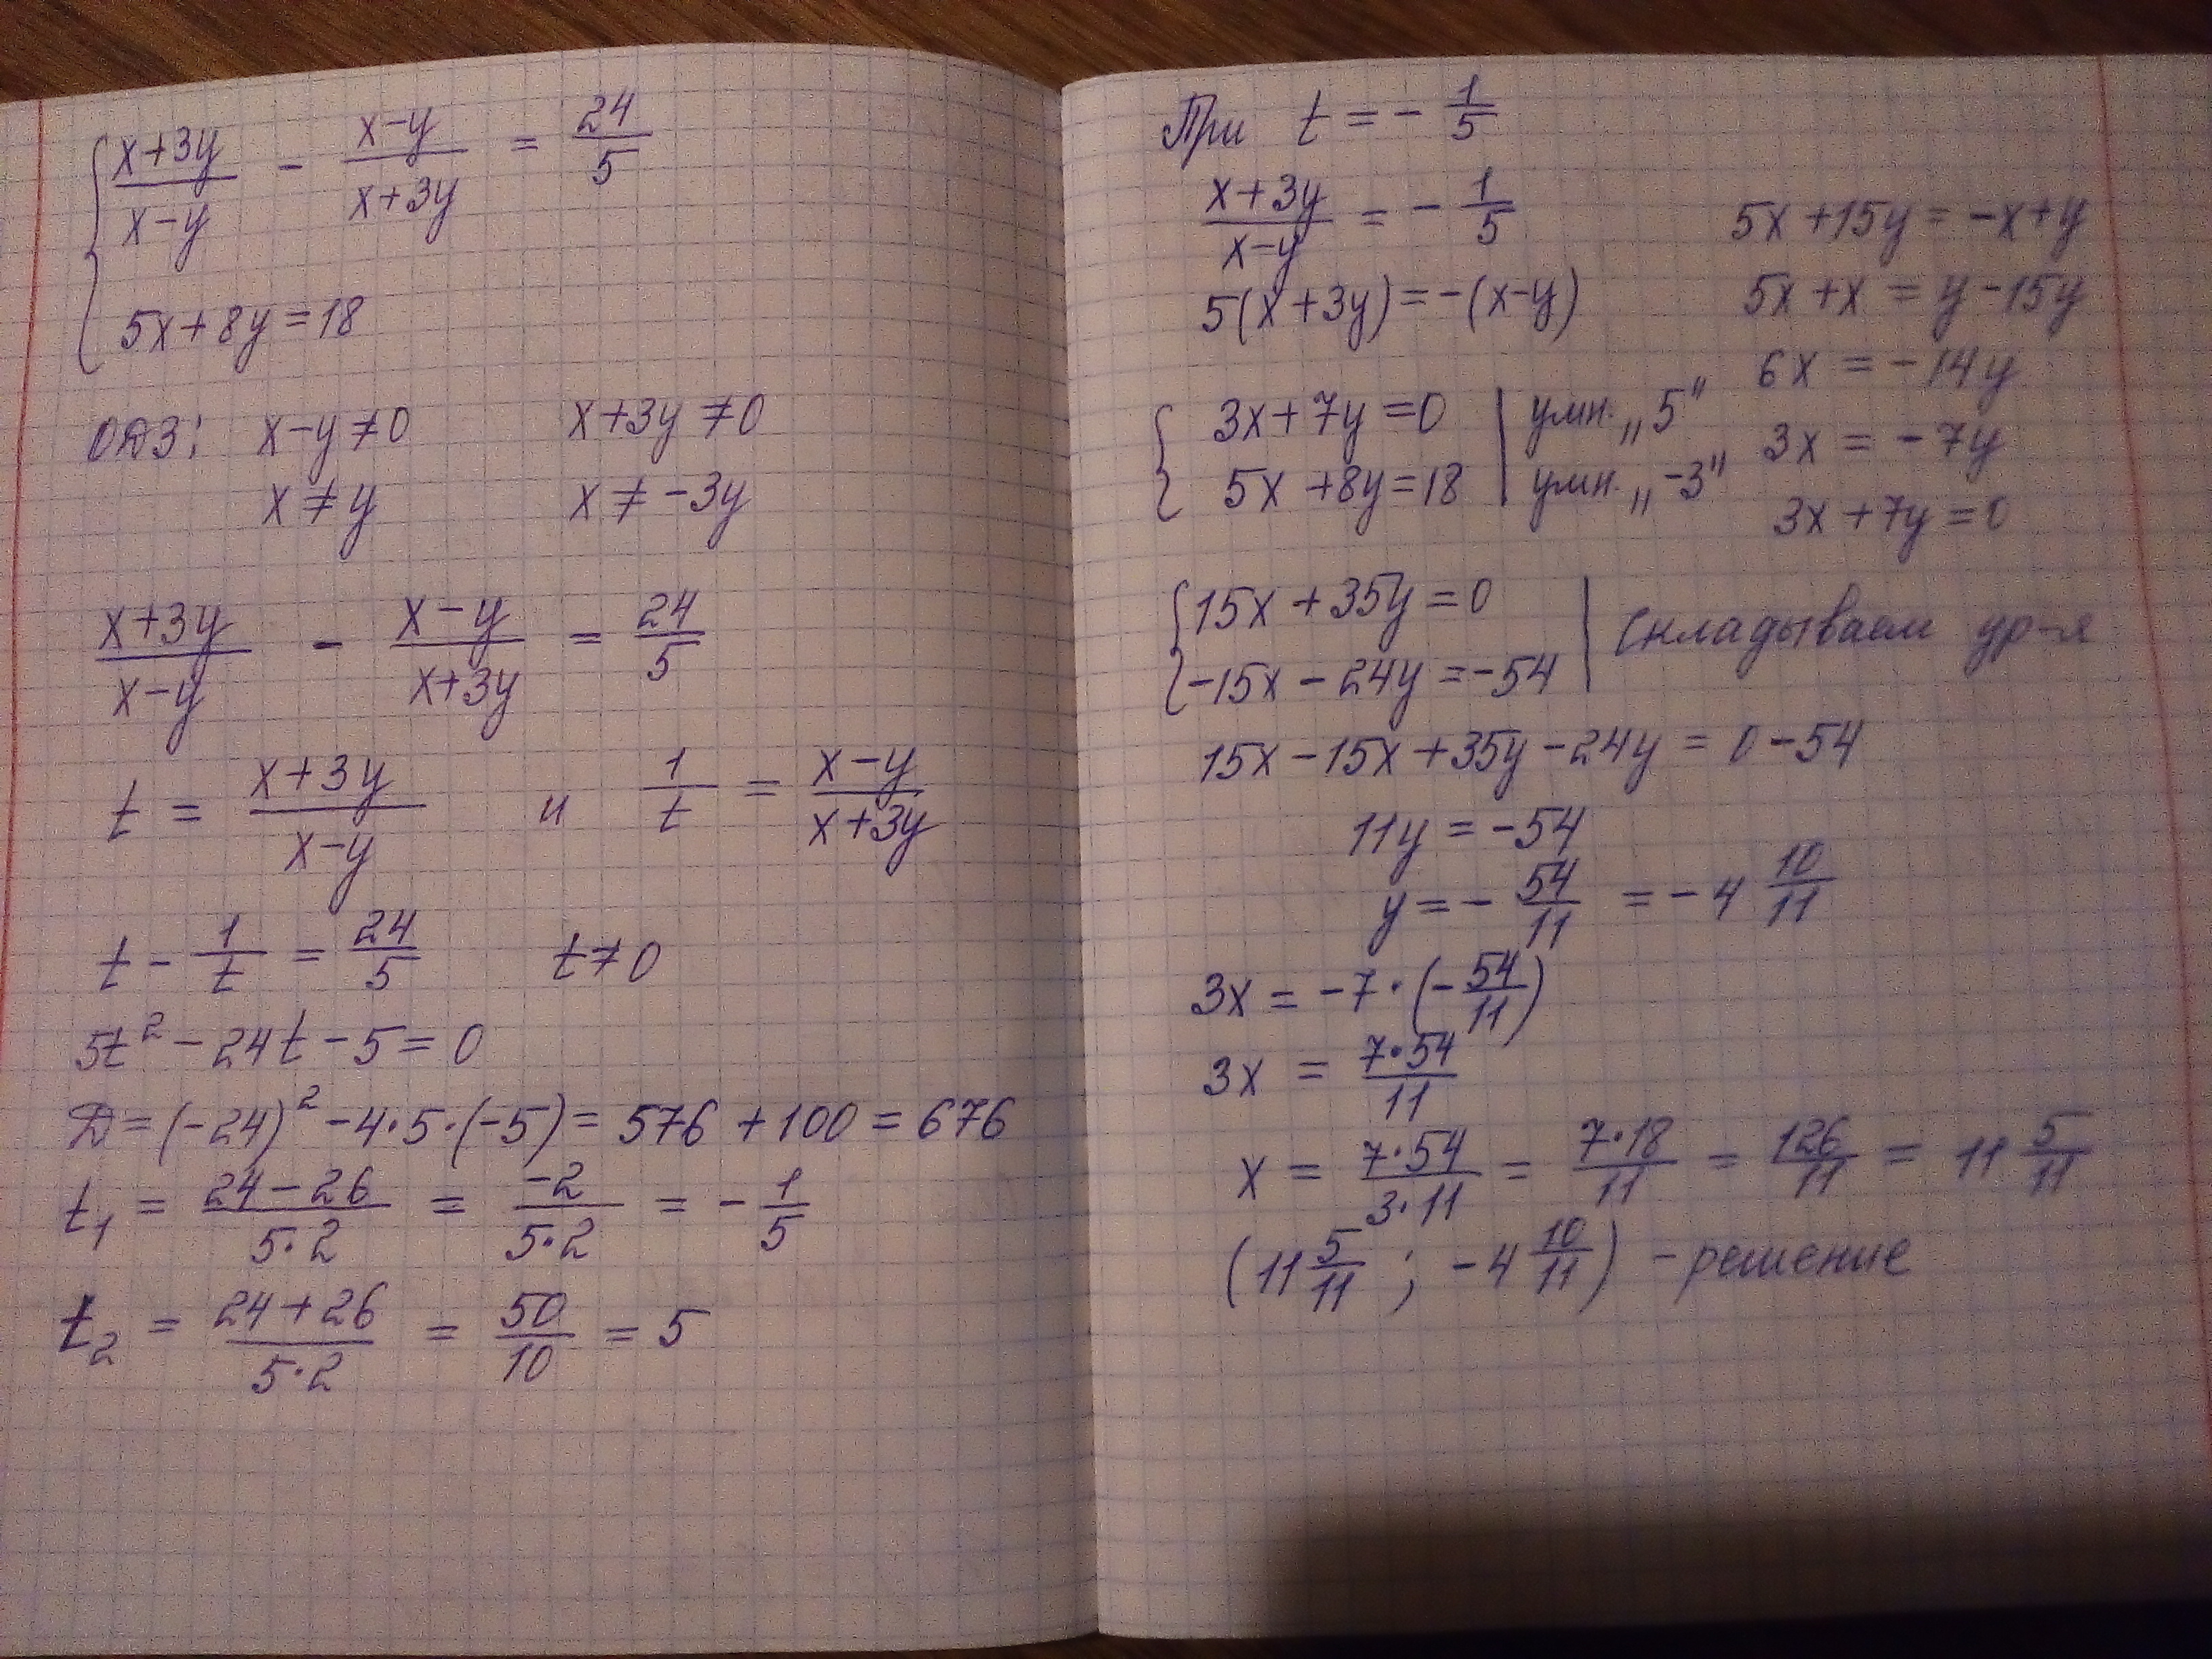 { (x+3y)/(x-y) - (x-y)/(x+3y) = 24/5
5x+8y=18
ОДЗ: x-y≠0 x+3y≠0
x≠y x≠-3y
(x+3y)/(x-y) - (x-y)/(x+3y) = 24/5
t = (x+3y)/(x-y) и 1/t = (x-y)/(x+3y)
t - 1/t = 24/5 t≠0
5t² - 24t - 5 = 0
D = (-24)² - 4·5·(-5) = 576 + 100 = 676
t₁ = (24-26)/(5·2) = -2/(5·2) = -1/5
t₂ = (24+26)/(5·2) = 50/10 = 5
При t = -1/5
(x+3y)/(x-y) = -1/5
5(x+3y) = -(x-y)
5x+15y = -x+y
5x+x = y-15y
6x = -14y
3x = -7y
3x+7y=0
{ 3x+7y=0 | умн. „5"
5x+8y=18 | умн. „-3"
{ 15x+35y=0 | Складываем ур-я
-15x-24y=-54
15x-15x+35y-24y = 0-54
11y = -54
y = -54/11 = -4 10/11
3x = -7·(-54/11)
3x = 7·54/11
x = 7·54/(3·11) = 7·18/11 = 126/11 = 11 5/11
(11 5/11 ; -4 10/11) - решение